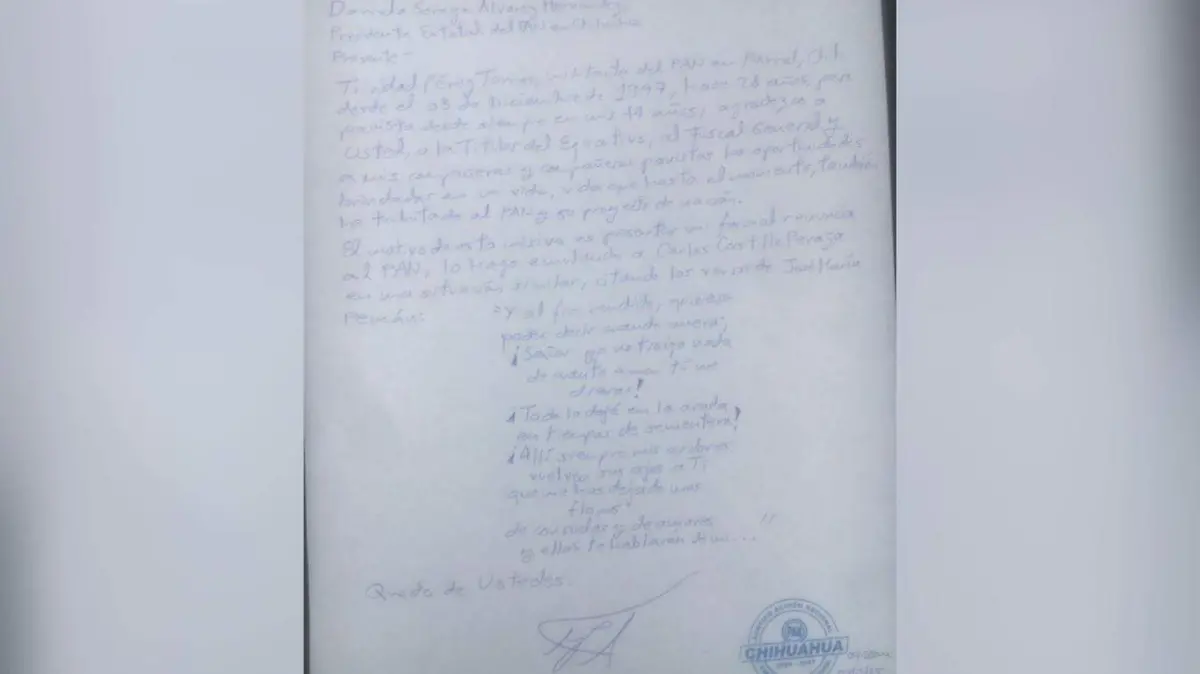 Daniela Soraya Álvarez Hernández
Presidenta Estatal del PAN en Chihuahua
Presente.-
militante del PAN en Parral, Chih.
desde el 03 de Diciembre de 1997, hace 28 años, pero
panista desde siempre en mis 49 años, agradezco a
Usted, a la Titular del Ejecutivo, al Fiscal General y
a mis compañeras y compañeros panistas las oportunidades
brindadas en mi vida, vida que hasta el momento, también
he tributado al PAN y su proyecto de nación.
El motivo de esta misiva es presentar mi formal renuncia
al PAN, lo hago emulando a Carlos Castillo Peraza
en una situación similar, citando los versos de José María
Pemán:
"Y al fin rendido, quisiera
poder decir cuando muera;
¡Señor yo no traigo nada
de cuanto a mi Ti me
dieras!
¡Todo lo dejé en la arada
en tiempos de sementera!
¡Allí sembré mis ardores
vuelve tus ojos a Ti
que me has dejado unas
flores
de consuelos y de amores
y ellas te hablarán de mi..."
Quedo de Ustedes.
PARTIDO ACCIÓN NACIONAL
PAN
CHIHUAHUA